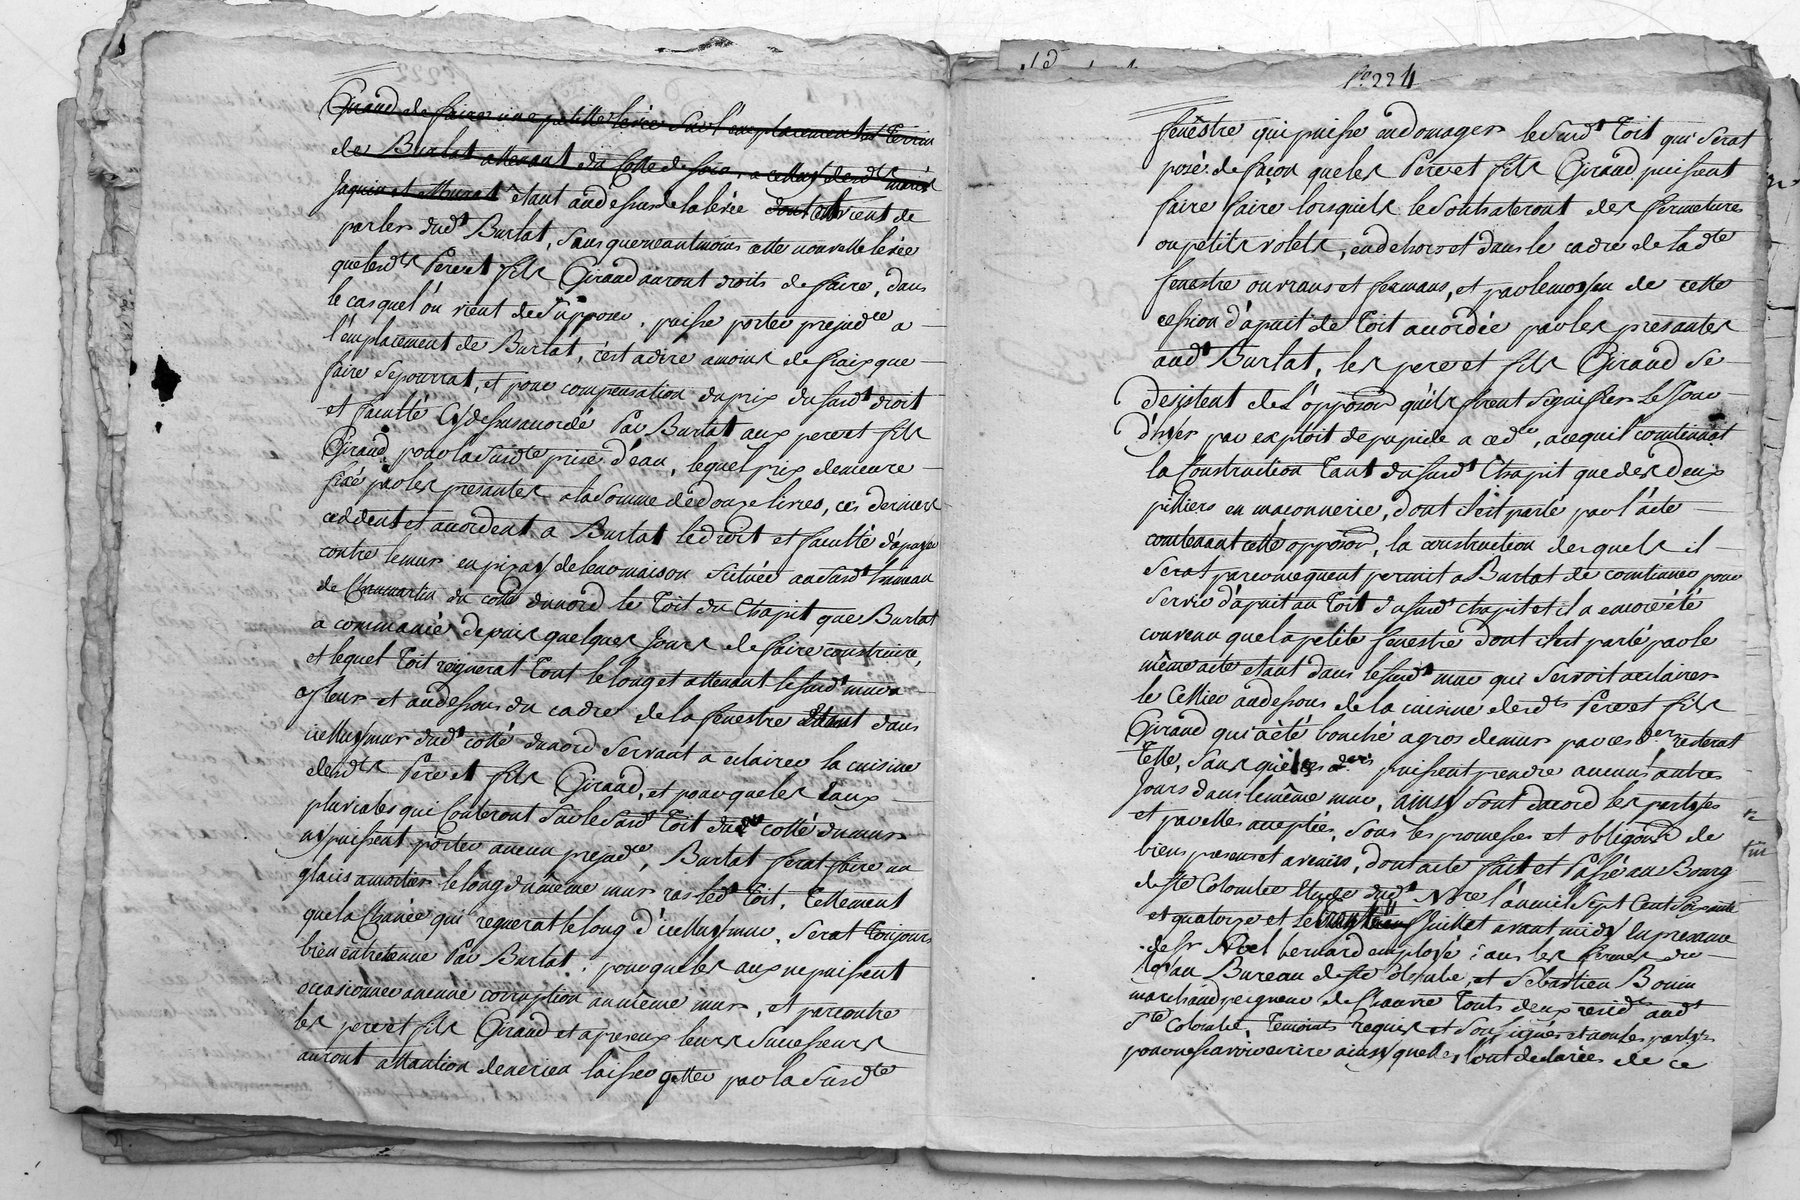 Giraud de faire une petitte levée sur l'emplacement et terrin
de Burlat attenant du cotté de soir, a celluy desds mariés
Jaquin et Murat étant audessus de la levée dont on vient de
parler dudt Burlat, sans que neantmoins cette nouvelle levée
que lesds Pere et fils Giraud auront droits de faire, dans
le cas que l'on vient de supposer, puisse porter prejudce a
l'emplacement de Burlat, c'est adire a moins de fraix que
faire se pourrat, et pour compensation du prix du susdt droit
et faculté Cy dessus accordé Par Burlat aux pere et fils
Giraud pour la susdte prise d'eau, lequel prix demeure
fixé par les presantes a la somme de douze livres, ces derniers
ceddent et accordent a Burlat le droit et faculté d'apayer
contre le mur en pizay de leur maison scituée au susdt hameau
de Chaumartin du cotté du nord le Toit du Chapit que Burlat
a commancé depuis quelques Jours de faire construire,
et lequel Toit regnerat Tout le long et attenant le susdt mur
a fleur et audessous du cadre de la fenestre Etant dans
icelluy mur dudt cotté du nord servant a eclairer la cuisine
desds Pere et fils Giraud, et pour que les Eaux
pluviales qui Couleront sur le susdt Toit du cotté du mur
n'y puissent porter aucun prejudce, Burlat ferat faire un
glacis a mortier le long du même mur ras ledt Toit, Tellement
que la Chanée qui regnerat le long d'icelluy mur, serat Toujours
bien entretenue Par Burlat, pour que les aux ne puissent
occasionner aucune corruption au même mur, et par contre
les pere et fils Giraud et apres eux leurs Successeurs
auront attantion de ne rien laisser getter par la susdte
fo 224
fenêstre qui puisse endomager le susdt Toit qui serat
posé de façon que les Pere et fils Giraud puissent
faire faire lorsquils le souhaiteront des fermetures
ou petits volets, en dehors et dans le cadre de la dte
fenestre ouvrans et fermans, et par le moyen de cette
cession d'apuit de Toit accordée par les presantes
audt Burlat, les pere et fils Giraud se
desistent de l'opposon qu'ils firent signifier le Jour
d'hyer par exploit de papide a cedt, a ce quil continuat
la Construction Tant du susdt Chapit que des deux
pilliers en maconnerie, dont il est parlé par l'acte
contenant cette opposon, la construction desquels il
Serat par consequent permit a Burlat de continuer pour
servir d'apuit au Toit du susdt Chapit et il a encore été
convenu que la petite fenestre dont il est parlé par le
même acte etant dans le susdt mur qui servoit a eclairer
le Cellier audessous de la cuisine desds Pere et fils
Giraud qui a èté bouché a gros de mur par ces ders resterat
Telle, sans que ces ders puissent prendre aucuns autres
Jours dans le même mur, ainsy sont dacord les parties
et par elles acceptées, sous les promesses et obligaons de
biens presens et avenirs, dont acte fait et Passé au Bourg
de ste Colombe Etude dudt Nore l'an mil sept Cent soixante
et quatorze et le Juillet avant midy En presance
de sr Noel bernard employé dans les fermes du
Roy au Bureau de ste Colombe, et Sebastien Bonin
marchand peigneur de Chanvre Touts deux residts audt
ste Colombe, Temoins requis et soussignés et non les parties
pour ne scavoir ecrire ainsy quelles l'ont declarées de ce